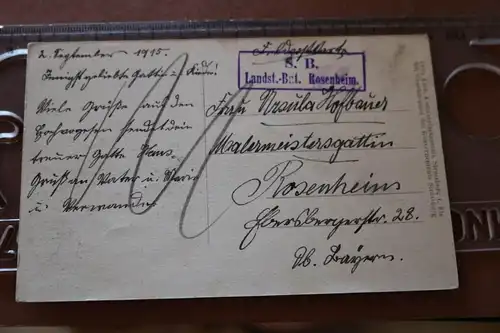 2. September 1915.
Innigst geliebte Gattin u. Kind!
Viele Grüße aus den
Hochvogesen sendet dein
treuer Gatte Hans.
Gruß an Vater u. Marie
u. Verwandte
Feldpostkarte
S. B.
Landst.-Bat. Rosenheim.
Frau Ursula Hofbauer
Malermeistersgattin
Rosenheim
Ebersbergerstr. 28.
Ob. Bayern.